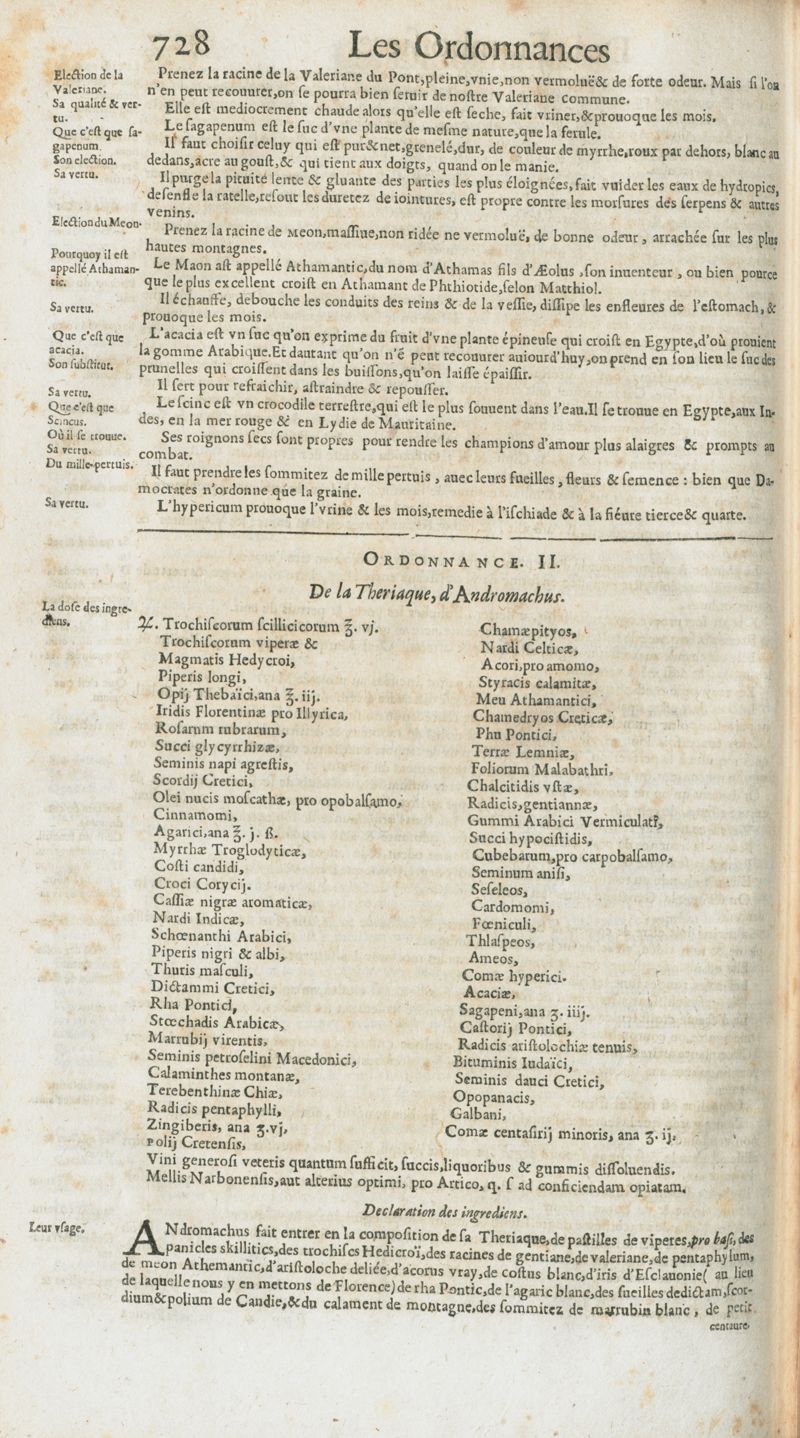 728 Les Ordonnances
Election de la
Valeriane.
Sa qualité & ver-
tu.
Que c'est que sa-
gapenum.
Son election.
Sa vertu.
Election du Meon.
Pourquoy il est
appellé Athaman-
tic.
Sa vertu.
Que c'est que
acacia.
Son substitut.
Sa vertu.
Que c'est que
Scincus.
Où il se trouue.
Sa vertu.
Du mille-pertuis.
Sa vertu.
Prenez la racine de la Valeriane du Pont,pleine,vnie,non vermoluë& de forte odeur. Mais si l'on
n'en peut recouurer,on se pourra bien seruir de nostre Valeriane commune.
Elle est mediocrement chaude alors qu'elle est seche, fait vriner,&prouoque les mois.
Le sagapenum est le suc d'vne plante de mesme nature,que la ferule.
Il faut choisir celuy qui est pur&net,grenelé,dur, de couleur de myrrhe,roux par dehors, blanc au
dedans,acre au goust,& qui tient aux doigts, quand on le manie.
Il purge la pituité lente & gluante des parties les plus éloignées,fait vuider les eaux de hydropics,
desenfle la ratelle,resout les duretez de iointures, est propre contre les morsures des serpens & autres
venins.
Prenez la racine de Meon,massiue,non ridée ne vermoluë, de bonne odeur, arrachée sur les plus
hautes montagnes.
Le Maon ast appellé Athamantic,du nom d'Athamas fils d'Æolus ,son inuenteur , ou bien pource
que le plus excellent croist en Athamant de Phthiotide,selon Matthiol.
Il échauffe, debouche les conduits des reins & de la vessie, dissipe les enfleures de l'estomach, &
prouoque les mois.
L'acacia est vn suc qu'on exprime du fruit d'vne plante épineuse qui croist en Egypte,d'où prouient
la gomme Arabique.Et dautant qu'on n'é peut recouurer auiourd'huy,on prend en son lieu le suc des
prunelles qui croissent dans les buissons,qu'on laisse épaissir.
Il sert pour refraichir, astraindre & repousser.
Le scinc est vn crocodile terrestre,qui est le plus souuent dans l'eau.Il se trouue en Egypte,aux In-
des, en la mer rouge & en Lydie de Mauritaine.
Ses roignons secs sont propres pour rendre les champions d'amour plus alaigres & prompts au
combat.
Il faut prendre les sommitez de mille pertuis , auec leurs fueilles , fleurs & semence : bien que Da-
mocrates n'ordonne que la graine.
L'hypericum prouoque l'vrine & les mois,remedie à l'ischiade & à la fiéure tierce& quarte.
ORDONNANCE. II.
De la Theriaque, d'Andromachus.
La dose des ingre-
diens.
℞. Trochiscorum scillicicorum ℥. vj.
Trochiscorum viperæ &
Magmatis Hedycroi,
Piperis longi,
Opij Thebaïci,ana ℥. iij.
Iridis Florentinæ pro Illyrica,
Rosarum rubrarum,
Succi glycyrrhizæ,
Seminis napi agrestis,
Scordij Cretici,
Olei nucis moscathæ, pro opobalsamo,
Cinnamomi,
Agarici,ana ℥. j. ß.
Myrrhæ Troglodyticæ,
Costi candidi,
Croci Corycij.
Cassiæ nigræ aromaticæ,
Nardi Indicæ,
Schœnanthi Arabici,
Piperis nigri & albi,
Thuris masculi,
Dictammi Cretici,
Rha Pontici,
Stœchadis Arabicæ,
Marrubij virentis,
Seminis petroselini Macedonici,
Calaminthes montanæ,
Terebenthinæ Chiæ,
Radicis pentaphylli,
Zingiberis, ana ʒ.vj,
Polij Cretensis,
Chamæpityos,
Nardi Celticæ,
Acori,pro amomo,
Styracis calamitæ,
Meu Athamantici,
Chamedryos Creticæ,
Phu Pontici,
Terræ Lemniæ,
Foliorum Malabathri,
Chalcitidis vstæ,
Radicis,gentiannæ,
Gummi Arabici Vermiculati,
Succi hypocistidis,
Cubebarum,pro carpobalsamo,
Seminum anisi,
Seseleos,
Cardomomi,
Fœniculi,
Thlaspeos,
Ameos,
Comæ hyperici.
Acaciæ,
Sagapeni,ana ʒ. iiij.
Castorij Pontici,
Radicis aristolochiæ tenuis,
Bituminis Iudaïci,
Seminis dauci Cretici,
Opopanacis,
Galbani,
Comæ centasirij minoris, ana ʒ. ij,
Vini generosi veteris quantum sufficit, succis,liquoribus & gummis dissoluendis.
Mellis Narbonensis,aut alterius optimi, pro Artico, q. s ad conficiendam opiatam.
Declaration des ingrediens.
Leur vsage.
ANdromachus fait entrer en la composition de sa Theriaque,de pastilles de viperes,pro basi,des
panicles skillitics,des trochiscs Hedicroï,des racines de gentiane,de valeriane,de pentaphylum,
de meon Athemantic,d'aristoloche deliée,d'acorus vray,de costus blanc,d'iris d'Esclauonie( au lieu
de laquelle nous y en mettons de Florence) de rha Pontic,de l'agaric blanc,des fueilles dedictam,scor-
dium&polium de Candie,&du calament de montagne,des sommitez de marrubin blanc , de petit
centaure.